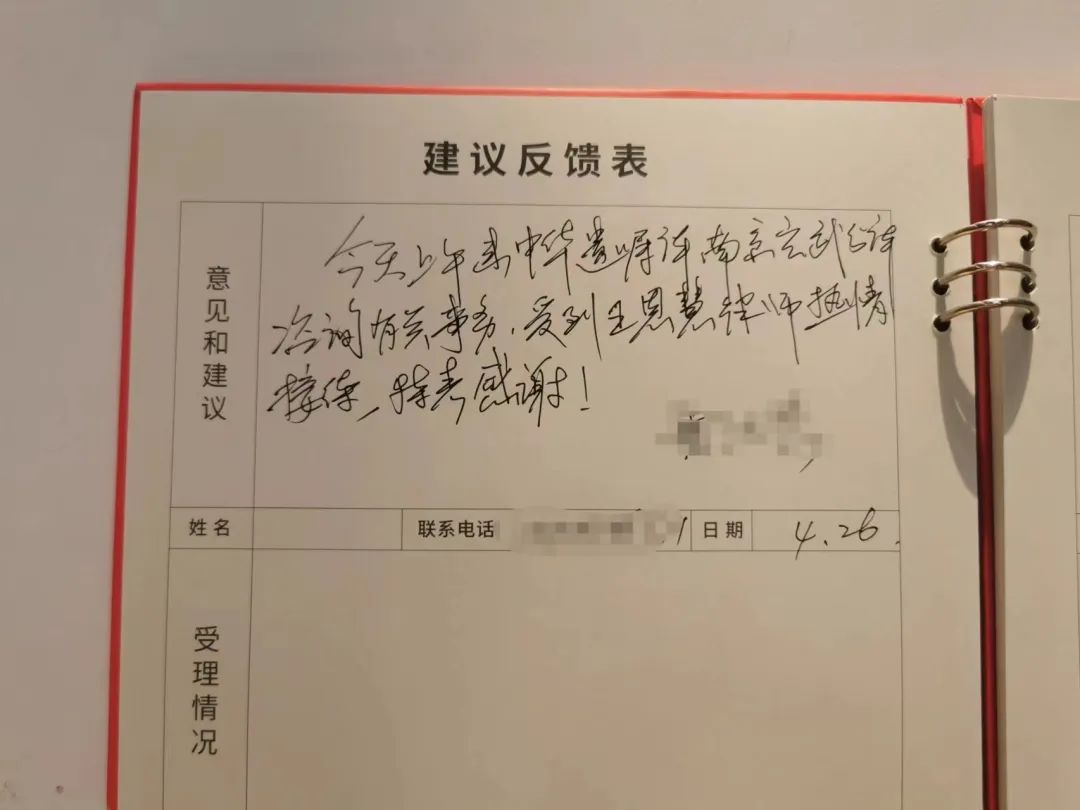 建议反馈表
意见和建议
今天上午来中华遗嘱库南京玄武分库
咨询有关事务，受到王恩慧律师热情
接待，特表感谢！
姓名
联系电话
日期
4.26.
受理情况